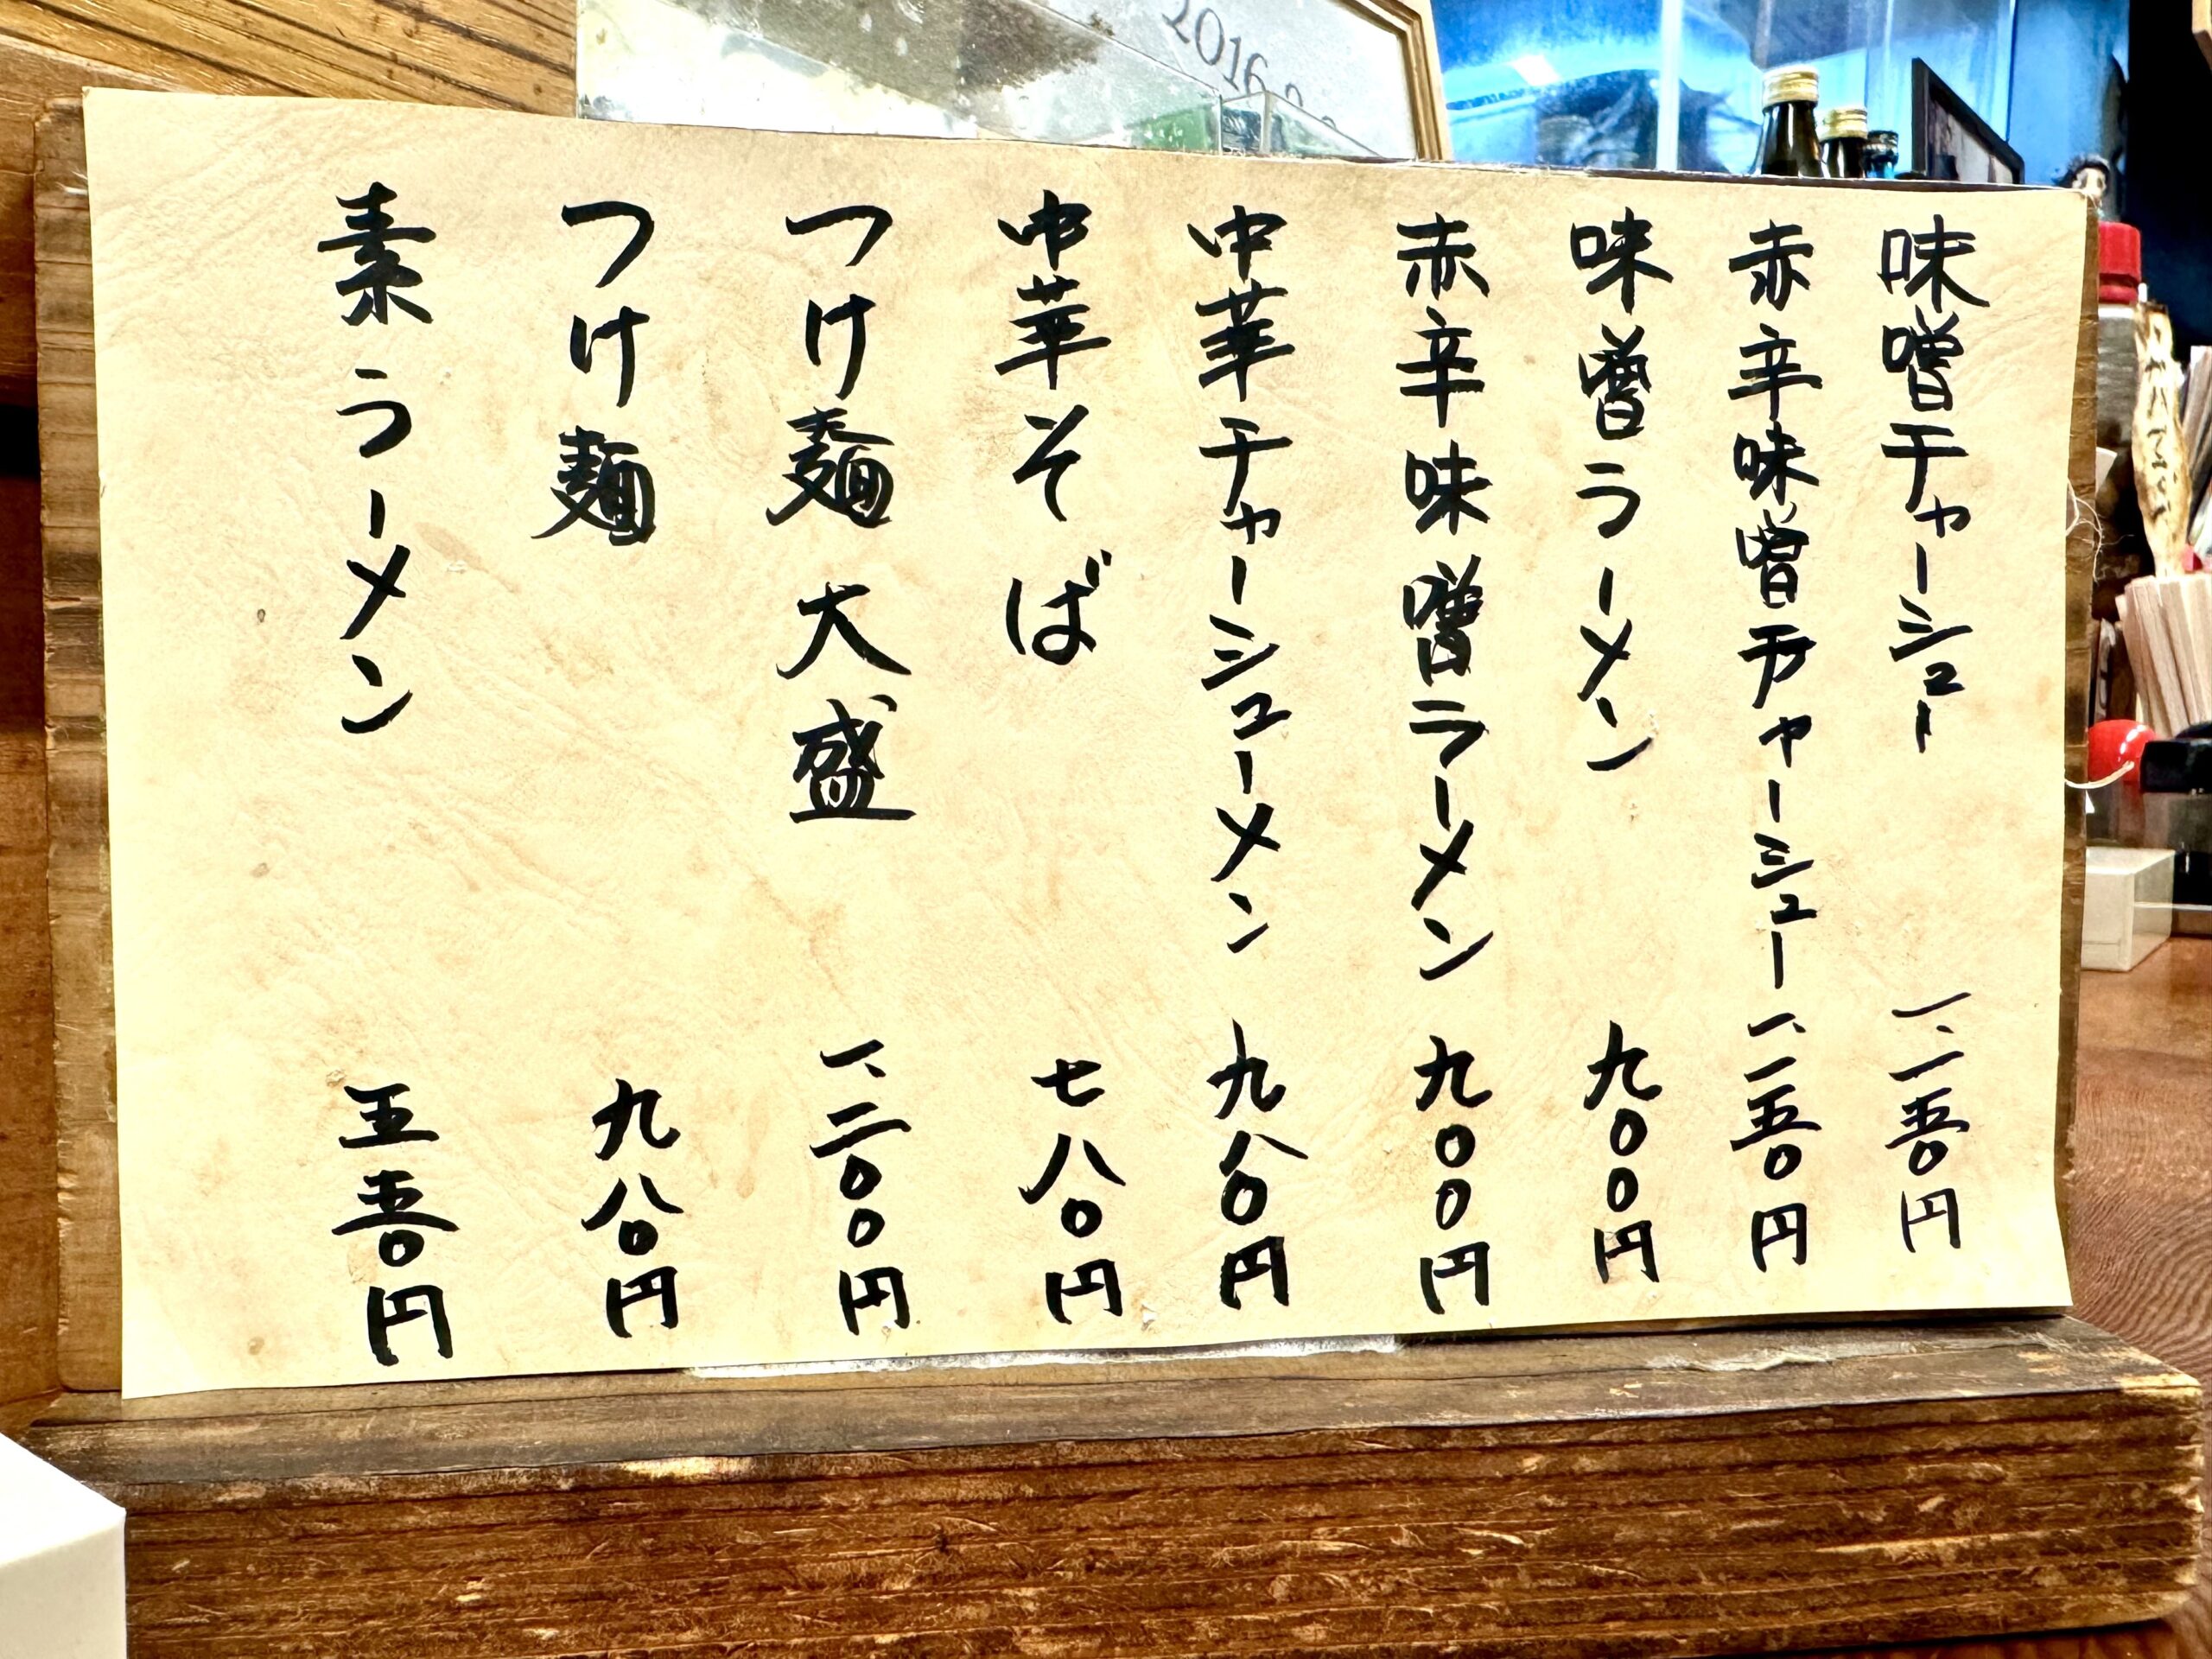 味噌チャーシュー 一、一五〇円
赤辛味噌チャーシュー 一、一五〇円
味噌ラーメン 九〇〇円
赤辛味噌ラーメン 九〇〇円
中華チャーシューメン 九八〇円
中華そば 七八〇円
つけ麺 大盛 一、二〇〇円
つけ麺 九八〇円
素ラーメン 五五〇円
2016